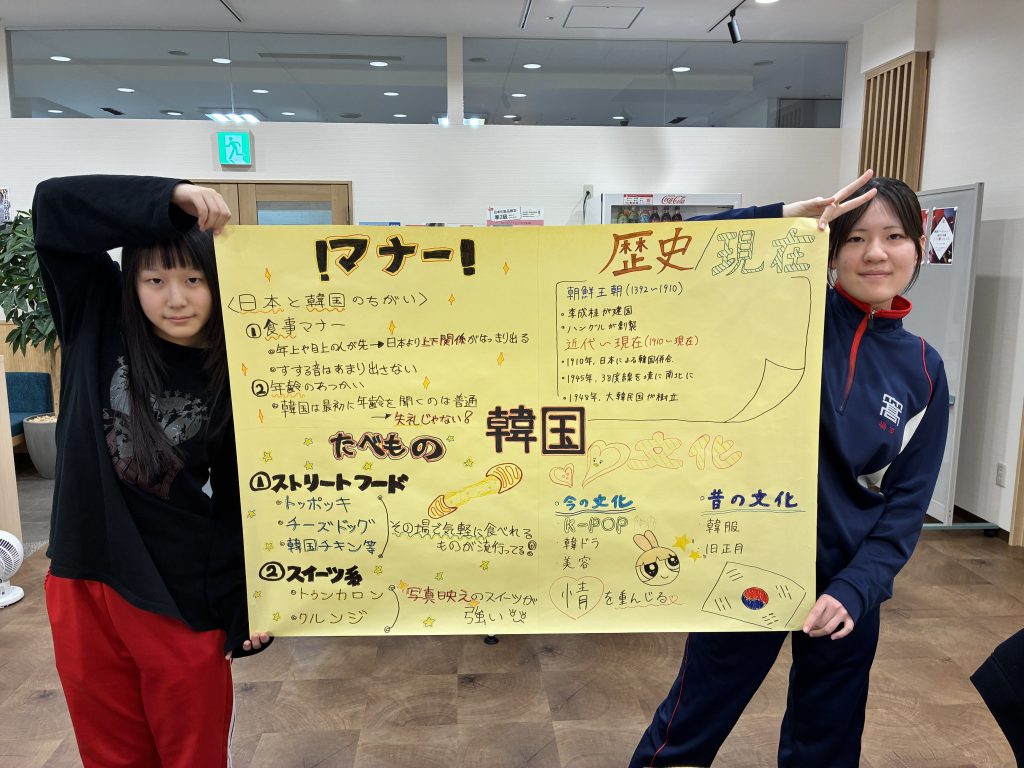 !マナー!
〈日本と韓国のちがい〉
①食事マナー
・年上や目上の人が先→日本より上下関係がはっきり出る
・すする音はあまり出さない
②年齢のあつかい
・韓国は最初に年齢を聞くのは普通
→失礼じゃない!
歴史/現在
朝鮮王朝(1392〜1910)
・李成桂が建国
・ハングルが創製
近代〜現在(1910〜現在)
・1910年、日本による韓国併合
・1945年、38度線を境に南北に
・1948年、大韓民国が樹立
韓国
たべもの
①ストリートフード
・トッポッキ
・チーズドッグ
・韓国チキン等
その場で気軽に食べれる
ものが流行ってる!
②スイーツ系
・トゥンカロン
・クルンジ
写真映えのスイーツが
強い
文化
・今の文化
・K-POP
・韓ドラ
・美容
・昔の文化
・韓服
・旧正月
情を重んじる
Coca-Cola